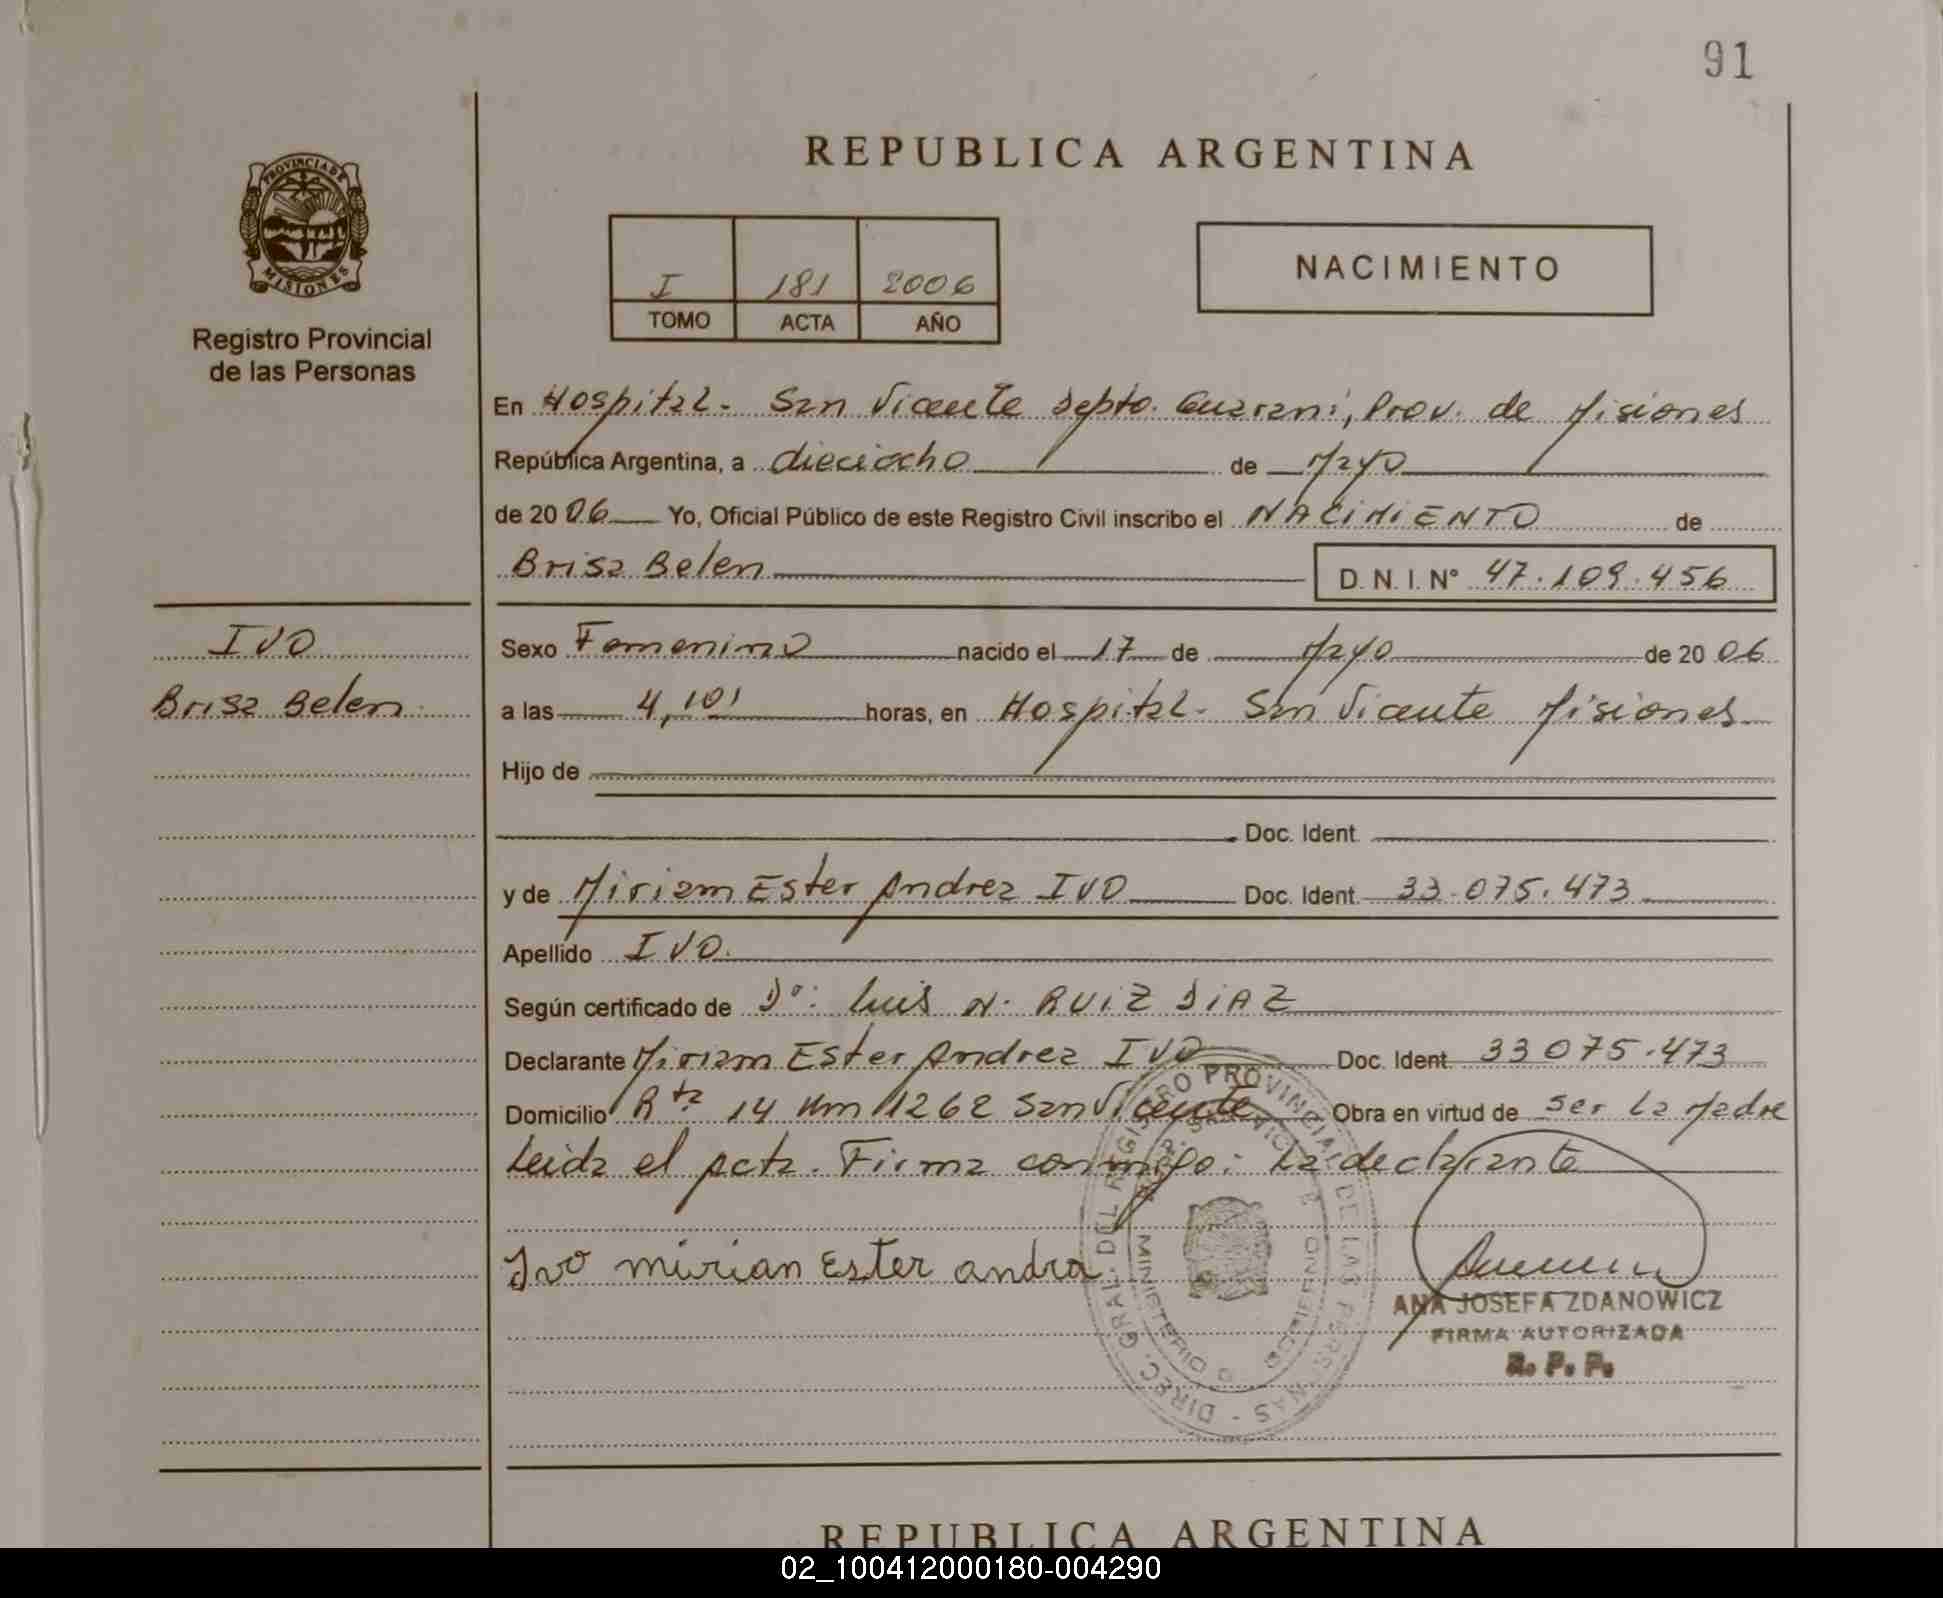 91
REPUBLICA ARGENTINA
PROVINCIA DE MISIONES
Registro Provincial
de las Personas
I 181 2006
TOMO ACTA AÑO
NACIMIENTO
En Hospital - San Vicente Depto. Guarani, Prov. de Misiones
República Argentina, a dieciocho de Mayo
de 2006 Yo, Oficial Público de este Registro Civil inscribo el NACIMIENTO de
Brisa Belen D. N. I. N° 47.109.456
IVO
Brisa Belen
Sexo Femenino nacido el 17 de Mayo de 2006
a las 4,10' horas, en Hospital - San Vicente Misiones
Hijo de
Doc. Ident.
y de Miriam Ester Andrea IVO Doc. Ident. 33.075.473
Apellido IVO.
Según certificado de Dr: Luis N. RUIZ DIAZ
Declarante Miriam Ester Andrea IVO Doc. Ident. 33075.473
Domicilio Rta 14 Km 1262 San Vicente Obra en virtud de ser la Madre
Leida el acta. Firma conmigo: La declarante
Ivo mirian Ester andrea
DIREC. GRAL. DEL REGISTRO PROVINCIAL DE LAS PERSONAS
MINISTERIO D GOBIERNO
ANA JOSEFA ZDANOWICZ
FIRMA AUTORIZADA
R. P. P.
REPUBLICA ARGENTINA
02_100412000180-004290